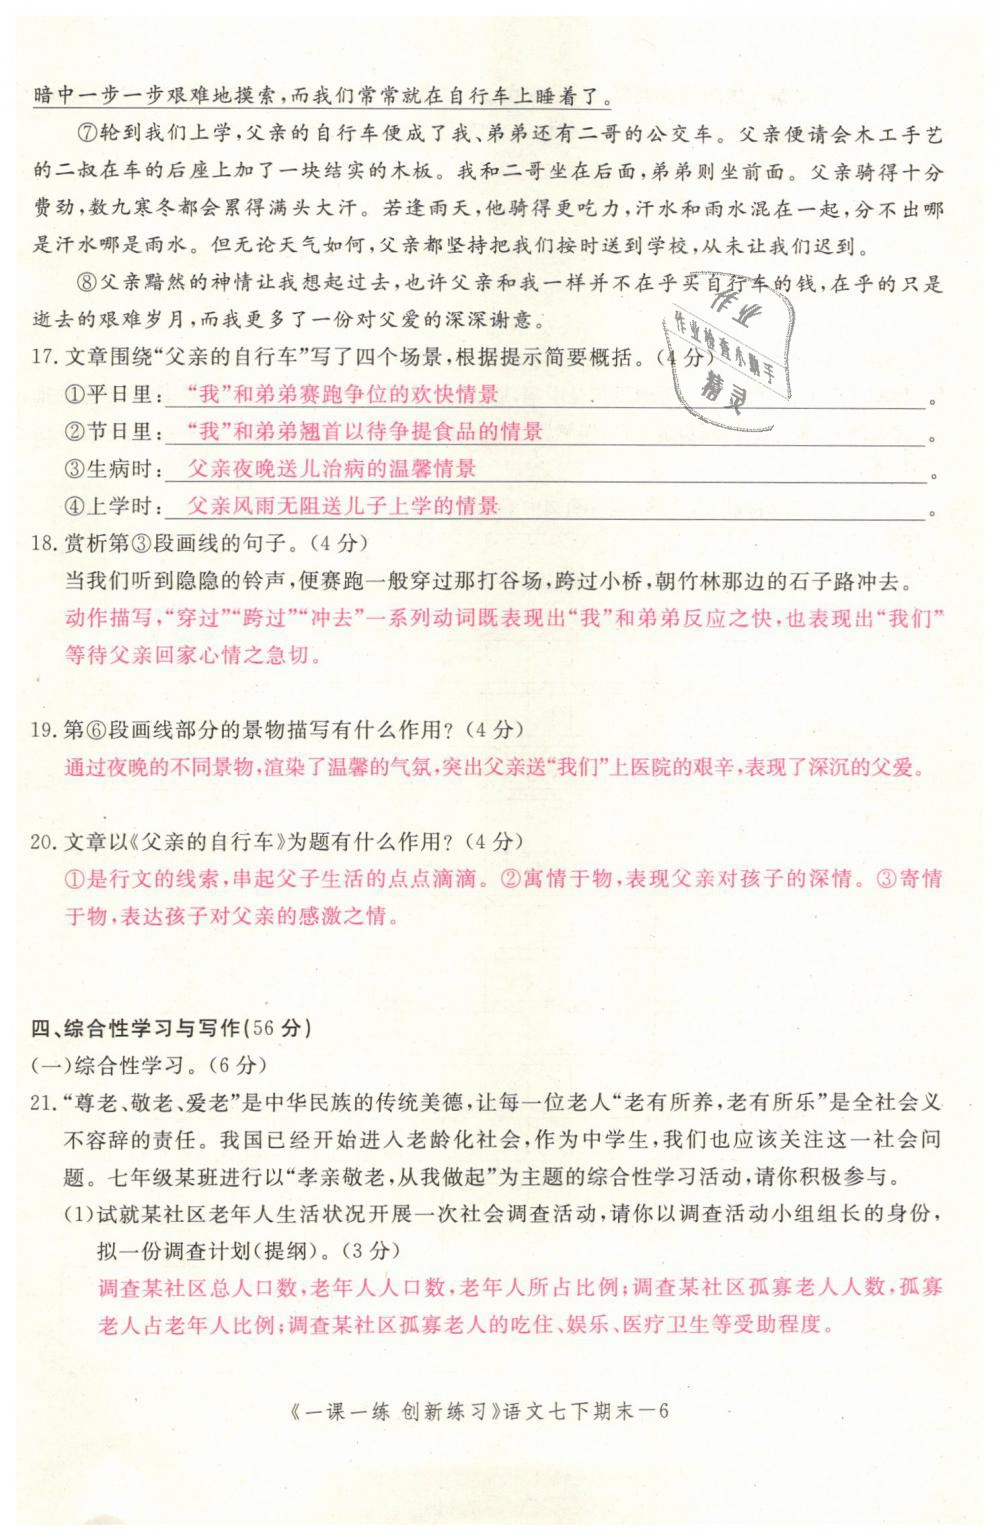 暗中一步一步艰难地摸索,而我们常常就在自行车上睡着了。
⑦轮到我们上学,父亲的自行车便成了我、弟弟还有二哥的公交车。父亲便请会木工手艺
的二叔在车的后座上加了一块结实的木板。我和二哥坐在后面,弟弟则坐前面。父亲骑得十分
费劲,数九寒冬都会累得满头大汗。若逢雨天,他骑得更吃力,汗水和雨水混在一起,分不出哪
是汗水哪是雨水。但无论天气如何,父亲都坚持把我们按时送到学校,从未让我们迟到。
⑧父亲黯然的神情让我想起过去,也许父亲和我一样并不在乎买自行车的钱,在乎的只是
逝去的艰难岁月,而我更多了一份对父爱的深深谢意。
17.文章围绕“父亲的自行车”写了四个场景,根据提示简要概括。(4分)
①平日里:“我”和弟弟赛跑争位的欢快情景。
②节日里:“我”和弟弟翘首以待争提食品的情景。
③生病时:父亲夜晚送儿治病的温馨情景。
④上学时:父亲风雨无阻送儿子上学的情景。
18.赏析第③段画线的句子。(4分)
当我们听到隐隐的铃声,便赛跑一般穿过那打谷场,跨过小桥,朝竹林那边的石子路冲去。
动作描写,“穿过”“跨过”“冲去”一系列动词既表现出“我”和弟弟反应之快,也表现出“我们”
等待父亲回家心情之急切。
19.第⑥段画线部分的景物描写有什么作用?(4分)
通过夜晚的不同景物,渲染了温馨的气氛,突出父亲送“我们”上医院的艰辛,表现了深沉的父爱。
20.文章以《父亲的自行车》为题有什么作用?(4分)
①是行文的线索,串起父子生活的点点滴滴。②寓情于物,表现父亲对孩子的深情。③寄情
于物,表达孩子对父亲的感激之情。
四、综合性学习与写作(56分)
(一)综合性学习。(6分)
21.“尊老、敬老、爱老”是中华民族的传统美德,让每一位老人“老有所养,老有所乐”是全社会义
不容辞的责任。我国已经开始进入老龄化社会,作为中学生,我们也应该关注这一社会问
题。七年级某班进行以“孝亲敬老,从我做起”为主题的综合性学习活动,请你积极参与。
(1)试就某社区老年人生活状况开展一次社会调查活动,请你以调查活动小组组长的身份,
拟一份调查计划(提纲)。(3分)
调查某社区总人口数,老年人人口数,老年人所占比例;调查某社区孤寡老人人数,孤寡
老人占老年人比例;调查某社区孤寡老人的吃住、娱乐、医疗卫生等受助程度。
《一课一练 创新练习》语文七下期末—6
作业
作业检查小帮手
精灵